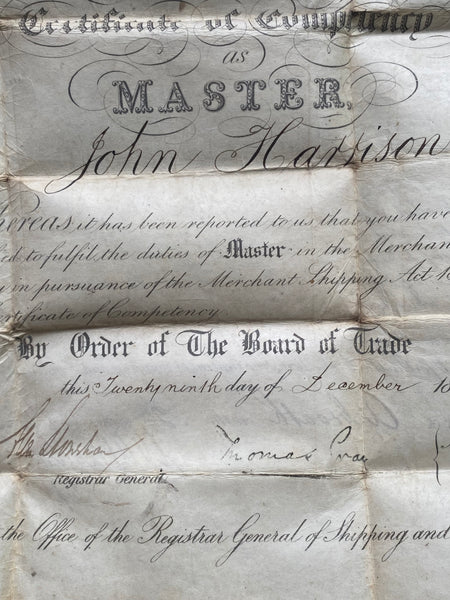 Certificate of Competency
as
MASTER,
John Harrison
hereas it has been reported to us that you have
ed to fulfil the duties of Master in the Merchan
in pursuance of the Merchant Shipping Act 18
ertificate of Competency
By Order of The Board of Trade
this Twenty ninth day of December 18
Thomas Gray
Registrar General
the Office of the Registrar General of Shipping and